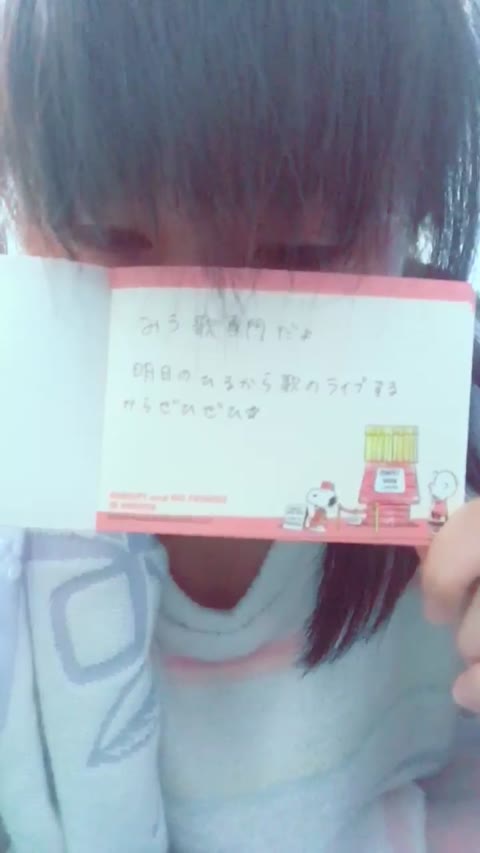 みう歌専門だよ
明日のひるから歌のライブする
からぜひぜひ☆
SNOOPY and HIS FRIENDS